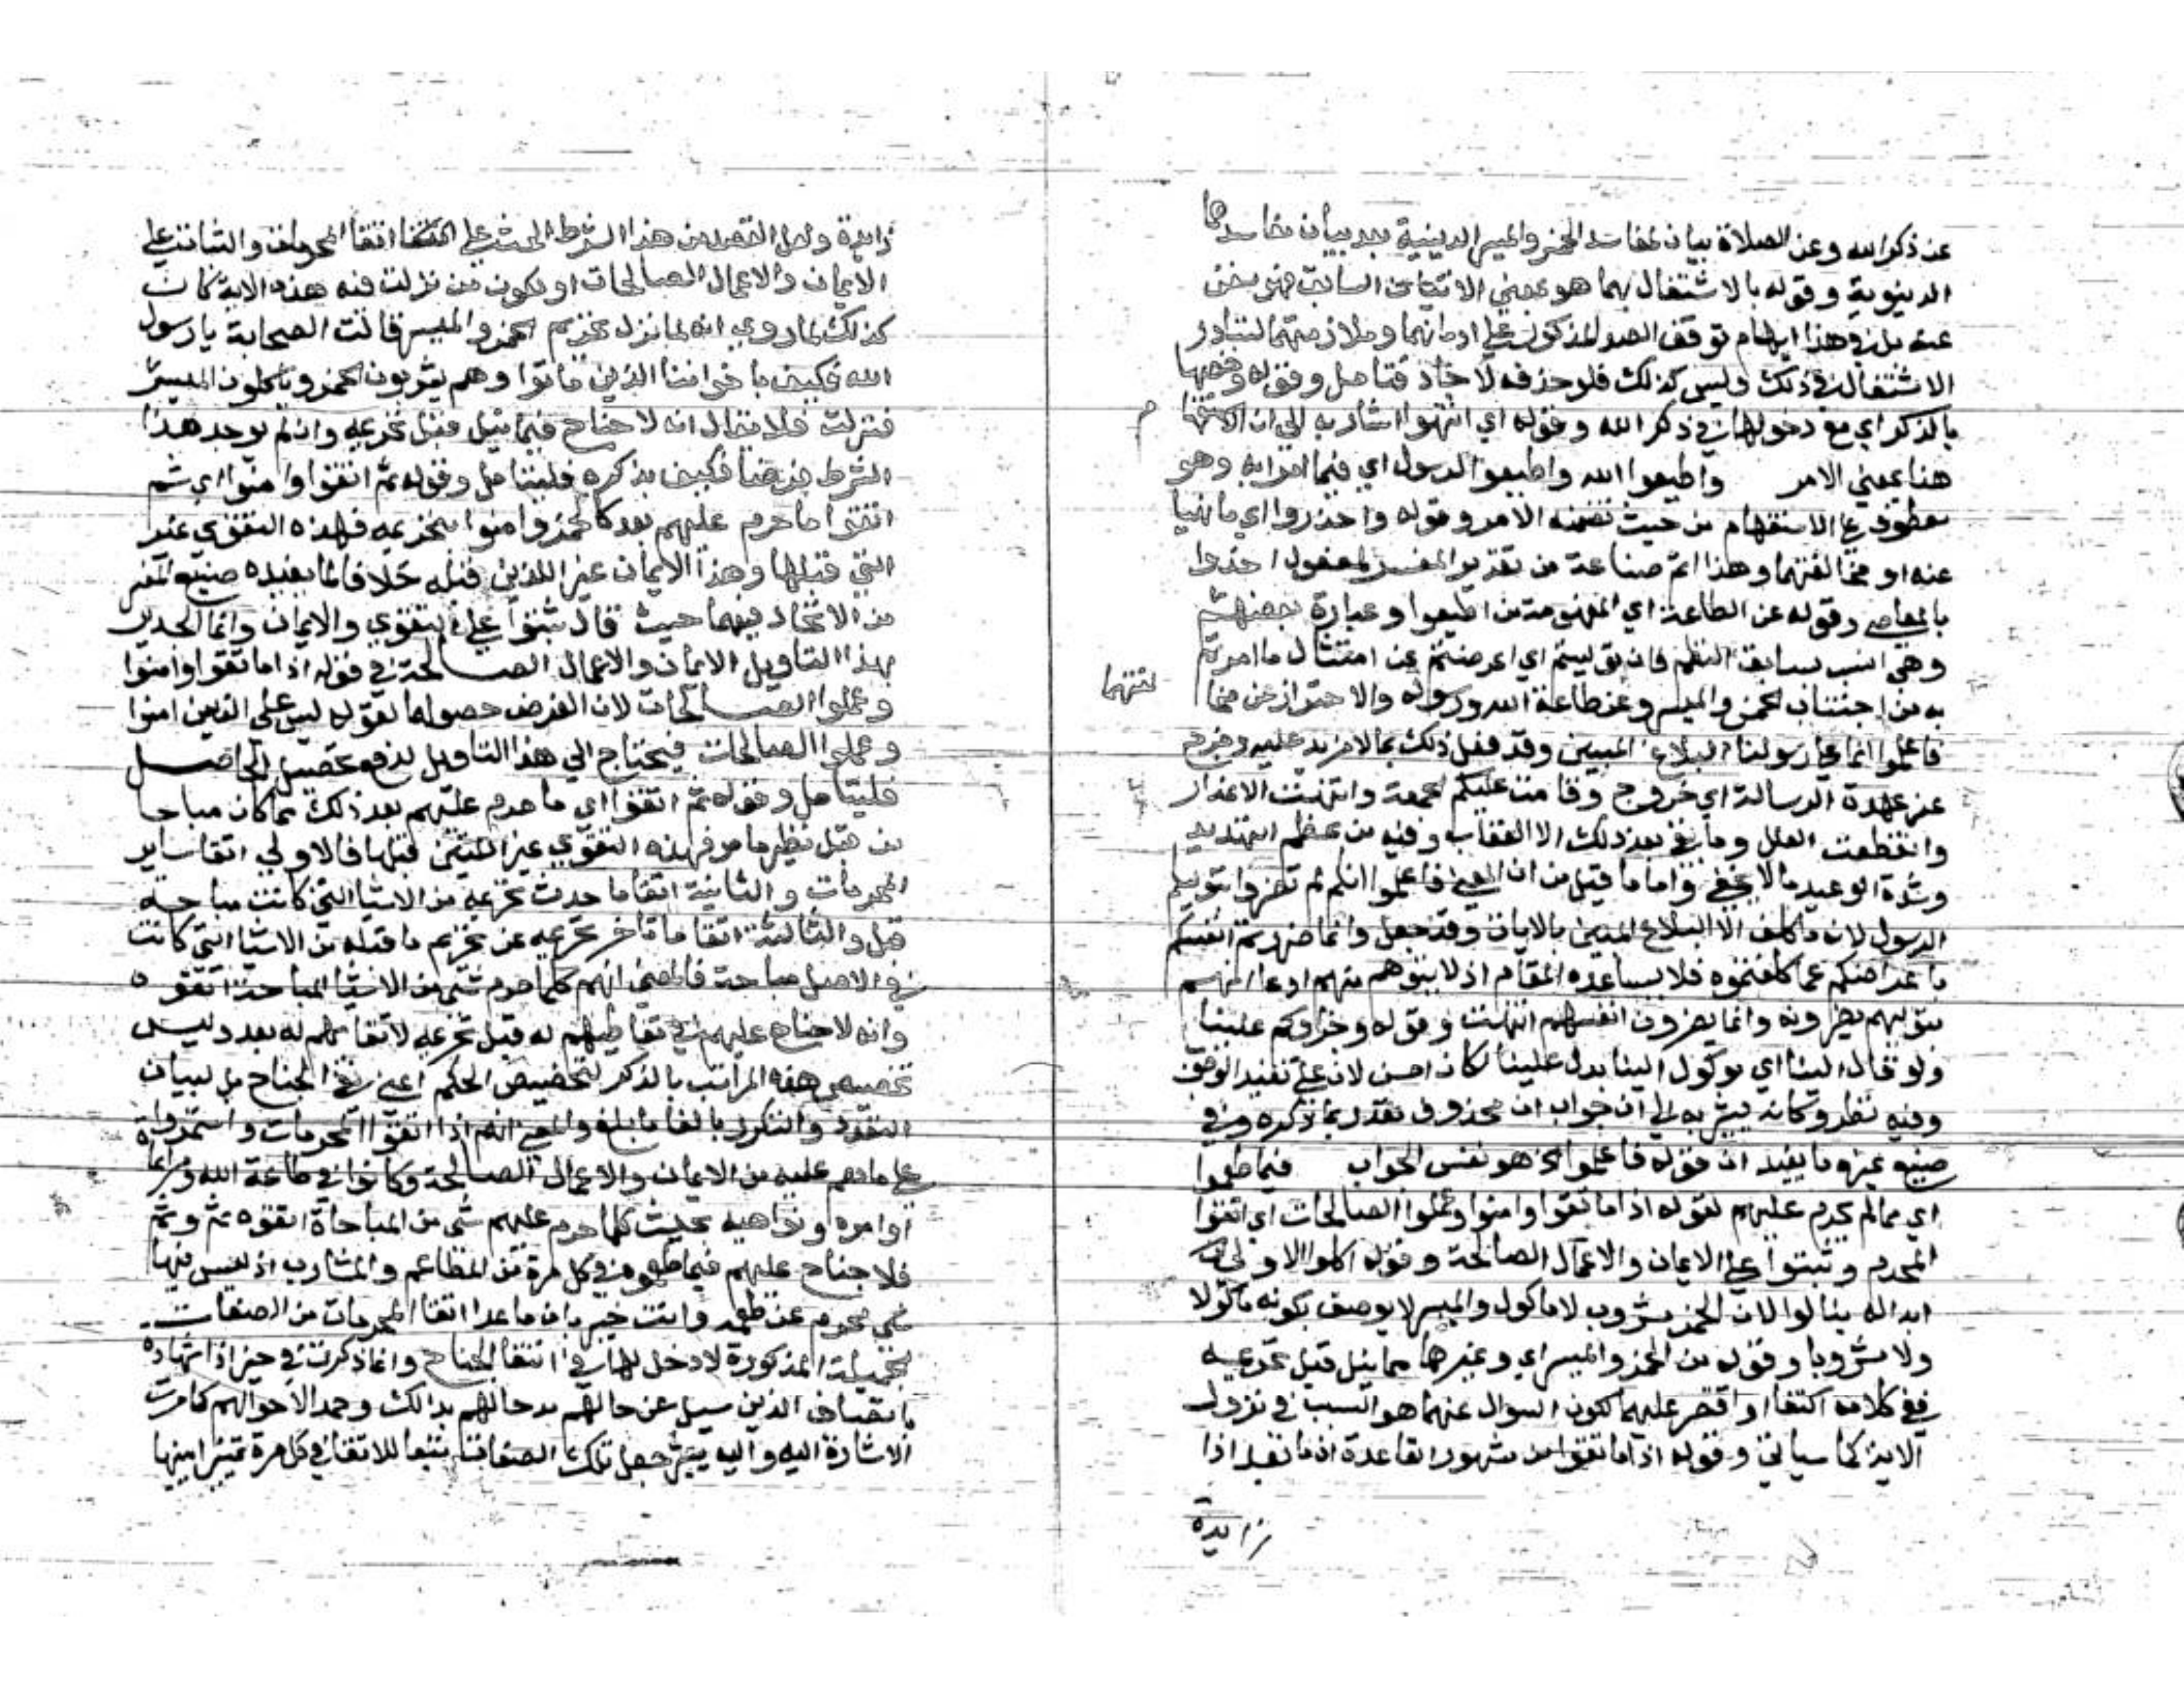 عن ذكر الله وعن الصلاة بيان لمفاسد الخمر والميسر الدينية بعد بيان مفاسدهما
الدينوية وقوله بالاشتغال بهما هو بمعنى الاتيان السابق فهو يغنى
عنه بل في هذا ايهام توقف الصد المذكور على ادمانهما وملازمتهما لتبادر
الاشتغال في ذلك وليس كذلك فلو حذفه لأجاد فتامل وقوله وخصها
بالذكر اي مع دخولها في ذكر الله وقوله اي انتهوا اشار به الى ان الاستفهام
هنا بمعنى الامر واطيعوا الله واطيعوا الرسول اي فيما امرا به وهو
معطوف على الاستفهام من حيث تضمنه الامر وقوله واحذروا اي ما نهيا
عنه او مخالفتهما وهذا اتم صناعة من تقدير المفسر لمفعول احذروا
بالمعاصي وقوله عن الطاعة اي المفهومة من اطيعوا وعبارة بعضهم
وهي انسب بسابق النظم فان توليتم اي اعرضتم عن امتثال ما امرتم
به من اجتناب الخمر والميسر وعن طاعة الله ورسوله والاحتراز عن مخا
لفتهما
فاعلموا انما على رسولنا البلاغ المبين وقد فعل ذلك بما لا مزيد عليه وخرج
عن عهدة الرسالة اي خروج وقامت عليكم الحجة وانتهت الاعذار
وانقطعت العلل وما بقي بعد ذلك الا العقاب وفيه من عظم التهديد
وشدة الوعيد ما لا يخفى واما ما قيل من ان المعنى فاعلموا انكم لم تضروا بتوليكم
الرسول لانه ما كلف الا البلاغ المبين بالايات وقد فعل وانما ضررتم انفسكم
باعراضكم عما كلفتموه فلا يساعده المقام اذ لا يتوهم منهم ادعا انهم
بتوليهم يضرونه وانما يضرون انفسهم انتهت وقوله وجزاؤكم علينا
ولو قال الينا اي موكول الينا بدل علينا لكان احسن لان على تفيد الوجوب
وفيه نظر وكانه يشير به الى ان جواب ان محذوف تقديره ما ذكره وفي
صنيع غيره ما يفيد ان قوله فاعلموا الخ هو نفس الجواب فيما طعموا
اي مما لم يحرم عليهم لقوله اذا ما اتقوا وامنوا وعملوا الصالحات اي اتقوا
المحرم وثبتوا على الايمان والاعمال الصالحة وقوله اكلوا الاولى
ابداله بنالوا لان الخمر مشروب لا ماكول والميسر لا يوصف بكونه ماكولا
ولا مشروبا وقوله من الخمر والميسر اي وغيرها مما ينل قبل تحريمه
ففي كلامه اكتفا او اقتصر عليهما لكون السوال عنهما هو السبب في نزول
الاية كما سياتي وقوله اذا ما اتقوا من مشهور القاعدة ان ما بعد اذا
زايدة
زايدة ولعل القصد من هذا الشرط الحث على اتقا المحرمات والثبات على
الايمان والاعمال الصالحات او يكون من نزلت فيه هذه الاية كان
كذلك لما روي انه لما نزل تحريم الخمر والميسر قالت الصحابة يا رسول
الله فكيف باخواننا الذين ماتوا وهم يشربون الخمر وياكلون الميسر
فنزلت فلا يقال انه لا جناح فيما ينل قبل تحريمه وان لم يوجد هذا
الشرط فكيف يذكره فليتامل وقوله ثم اتقوا وامنوا اي ثم
اتقوا ما حرم عليهم بعد كالخمر وامنوا بتحريمه فهذه التقوى غير
التي قبلها وهذا الايمان غير الذي قبله خلافا لما يفيده صنيع المفسر
من الاتحاد بينهما حيث قال ثبتوا على التقوى والايمان وانما الجدير
بهذا التاويل الايمان والاعمال الصالحة في قوله اذا ما اتقوا وامنوا
وعملوا الصالحات لان الفرض حصولها لقوله ليس على الذين امنوا
وعملوا الصالحات فيحتاج الى هذا التاويل لدفع تحصيل الحاصل
فليتامل وقوله ثم اتقوا اي ما حرم عليهم بعد ذلك مما كان مباحا
من قبل نظير ما مر فهذه التقوى غير اللتين قبلها فالاولى اتقا ساير
المحرمات والثانية اتقا ما حدث تحريمه من الاشيا التي كانت مباحة
قبل والثالثة اتقا ما تاخر تحريمه عن تحريم ما قبله من الاشيا التي كانت
في الاصل مباحة فالمعنى انهم كلما حرم شي من الاشيا المباحة اتقوه
وانه لا جناح عليهم في تعاطيهم له قبل تحريمه لاتقائهم له بعد وليس
تخصيص هذه المراتب بالذكر لتخصيص الحكم اعني نفي الجناح بل لبيان
التعدد والتكرر بالغا ما بلغ والمعنى انهم اذا اتقوا المحرمات واستمروا
على ما هم عليه من الايمان والاعمال الصالحة وكانوا في طاعة الله ومراعاة
اوامره ونواهيه بحيث كلما حرم عليهم شي من المباحات اتقوه ثم وثم
فلا جناح عليهم فيما طعموه في كل مرة من المطاعم والمشارب اذ ليس فيها
شي محرم عند طعمه وانت خبير بان ما عدا اتقا المحرمات من الصفات
الجميلة المذكورة لا دخل لها في انتفا الجناح وانما ذكرت في حيز اذا شهادة
باتصاف الذين سيل عن حالهم بها ومدحا لهم بذلك وحمدا لاحوالهم كما مرت
الاشارة اليه واليه يشير جعل تلك الصفات تبعا للاتقا في كل مرة تمييزا بينها